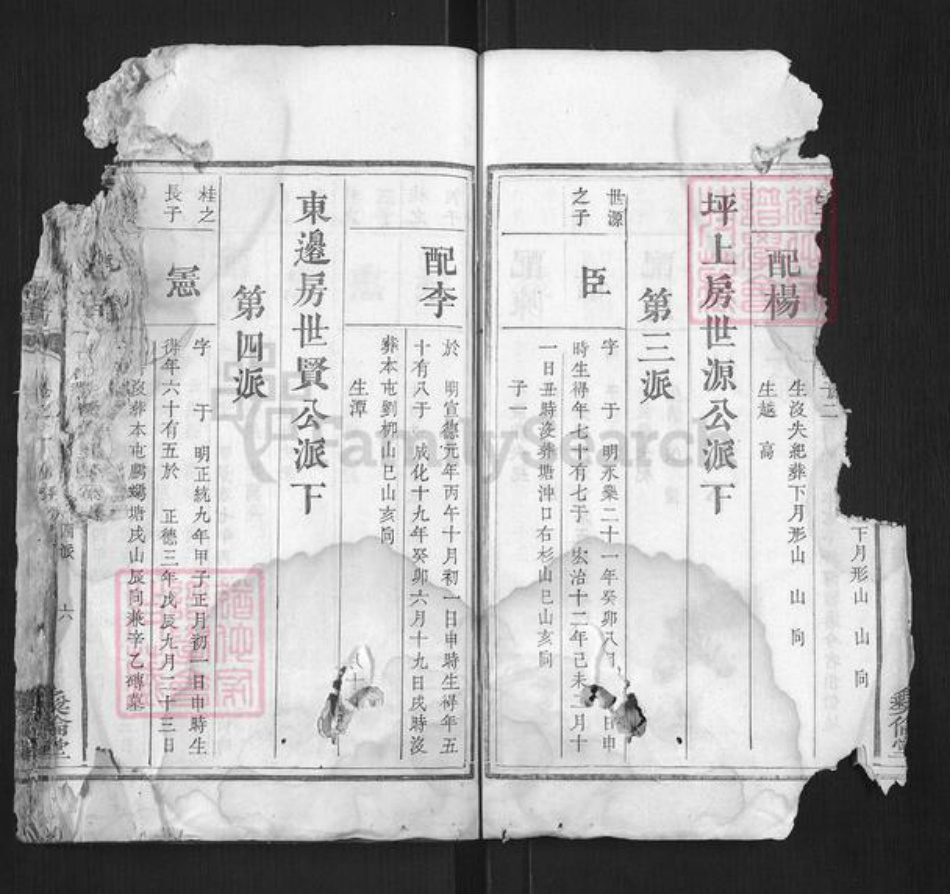 下月形山　山　向
子二
配楊
生沒失紀葬下月形山　山　向
生越　高
坪上房世源公派下
第三派
世源
之子
臣
字　于　明永樂二十一年癸卯八月　日申
時生得年七十有七于　宏治十二年己未　月十
一日丑時沒葬塘沖口右杉山巳山亥向
子一
配李
於　明宣德元年丙午十月初一日申時生得年五
十有八于　成化十九年癸卯六月十九日戌時沒
葬本屯劉柳山巳山亥向
生潭
東邊房世賢公派下
第四派
桂之
長子
憲
字　于　明正統九年甲子正月初一日申時生
得年六十有五於　正德三年戊辰九月二十三日
沒葬本屯　塘戌山辰向兼辛乙磚墓
四派
六
FamilySearch